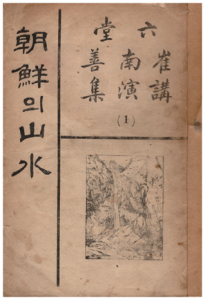 六堂
崔南善
講演集
(1)
朝鮮의山水